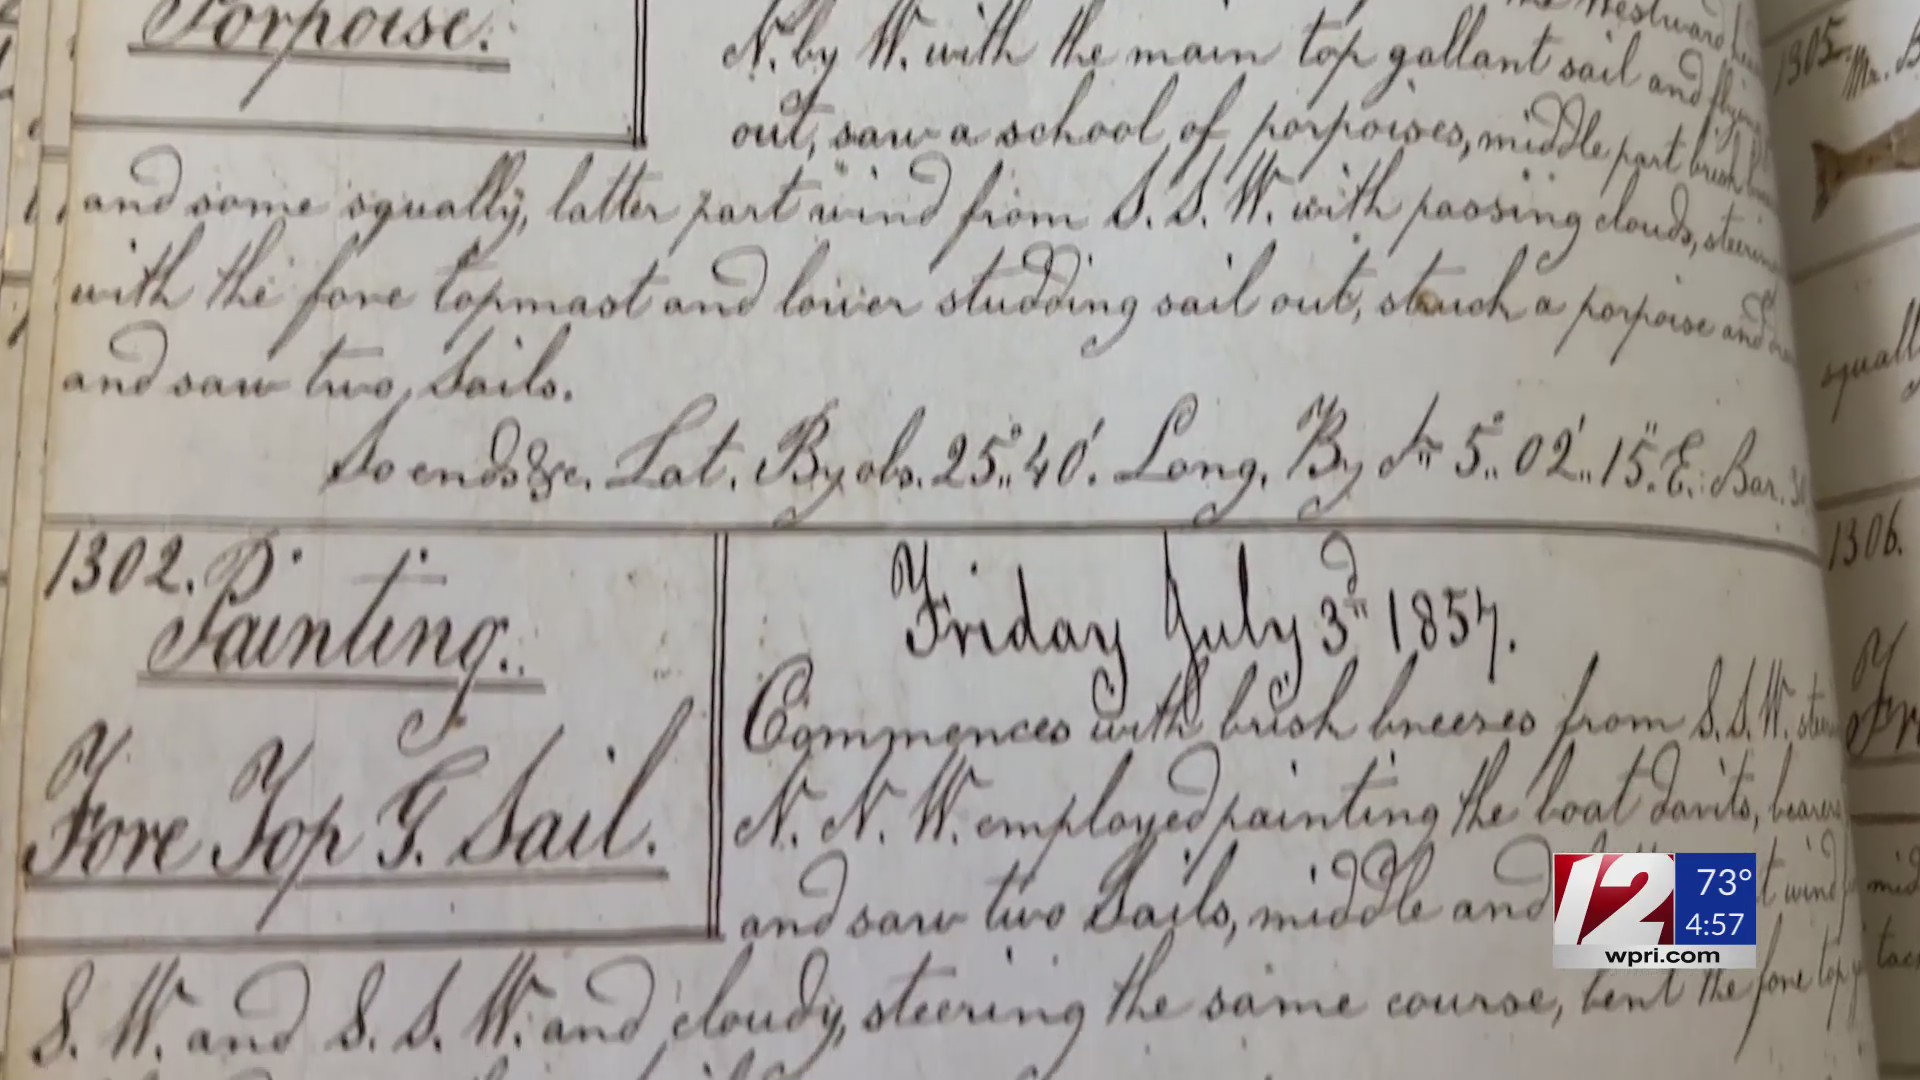 Porpoise.
N. by W. with the main top gallant sail and flying
out, saw a school of porpoises, middle part brisk
and some squally, latter part wind from S. S. W. with passing clouds, steering
with the fore topmast and lower studding sail out, struck a porpoise and
and saw two Sails.
So ends &c. Lat. By obs. 25°..40'. Long. By 5°..02'..15". E. Bar.
1302. D.
Painting.
Fore Top G. Sail.
Friday July 3d 1857.
Commences with brisk breezes from S. S. W.
N. N. W. employed painting the boat davits, bearers
and saw two Sails, middle and wind
S. W. and S. S. W. and cloudy, steering the same course, bent the fore top
1305.
Mr. B
squall
1306.
Fr
mid
tac
12
73°
4:57
wpri.com